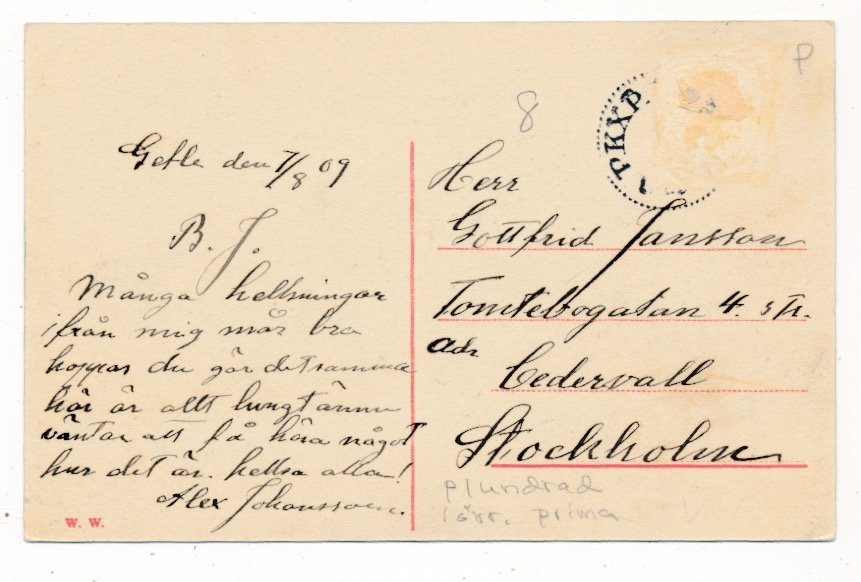 Gefle den 7/8 09
B. J.
Många helsningar
ifrån mig mår bra
hoppas du gör detsamma
här är allt lungt ännu
väntar att få höra något
hur det är. helsa alla!
Alex Johansson.
W. W.
8
P
PKXP.
Herr
Gottfrid Jansson
Tomtebogatan 4. 3 tr.
adr
Cedervall
Stockholm
plundrad
i övr. prima